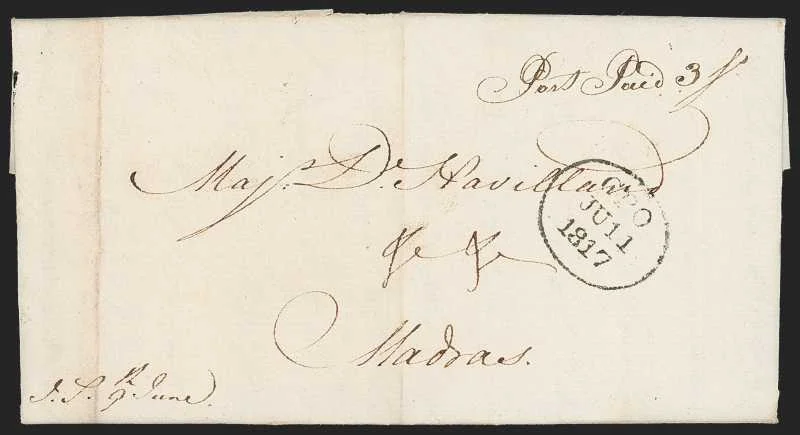 Post Paid 3
Majr. De Havilland
GPO
JU 11
1817
&c &c
Madras.
9th June.